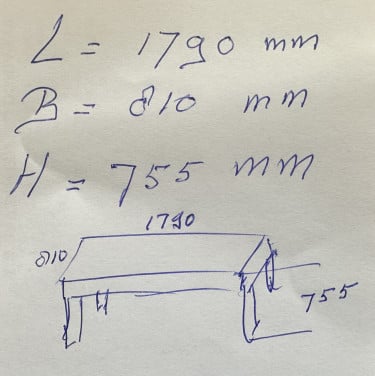 L = 1790 mm
B = 810 mm
H = 755 mm
1790
810
755